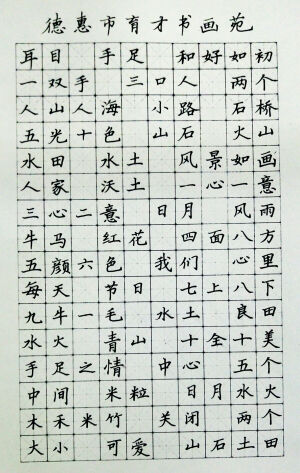 德惠市育才书画苑
耳目 手足 和好如初
一双手 三口人 两个
人山人海 小路石桥
五光十色 山石火山
水田 水土 风景如画
人家 沃土 一心一意
三心二意 日月 风雨
牛马 红花 四面八方
五颜六色 我们 心里
每天 节日 七上八下
九牛一毛 水土良田
水火 青山 十全十美
手足之情 中心 五个
中间 米粒 日月水火
木禾米竹 关闭 两个
大小 可爱 山石土田